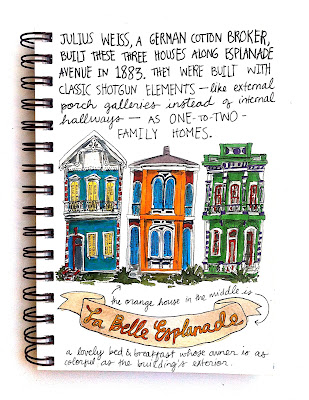 JULIUS WEISS, A GERMAN COTTON BROKER,
BUILT THESE THREE HOUSES ALONG ESPLANADE
AVENUE IN 1883. THEY WERE BUILT WITH
CLASSIC SHOTGUN ELEMENTS — like external
porch galleries instead of internal
hallways — AS ONE-TO-TWO-
FAMILY HOMES.
the orange house in the middle is
La Belle Esplanade
a lovely bed & breakfast whose owner is as
colorful as the building's exterior.